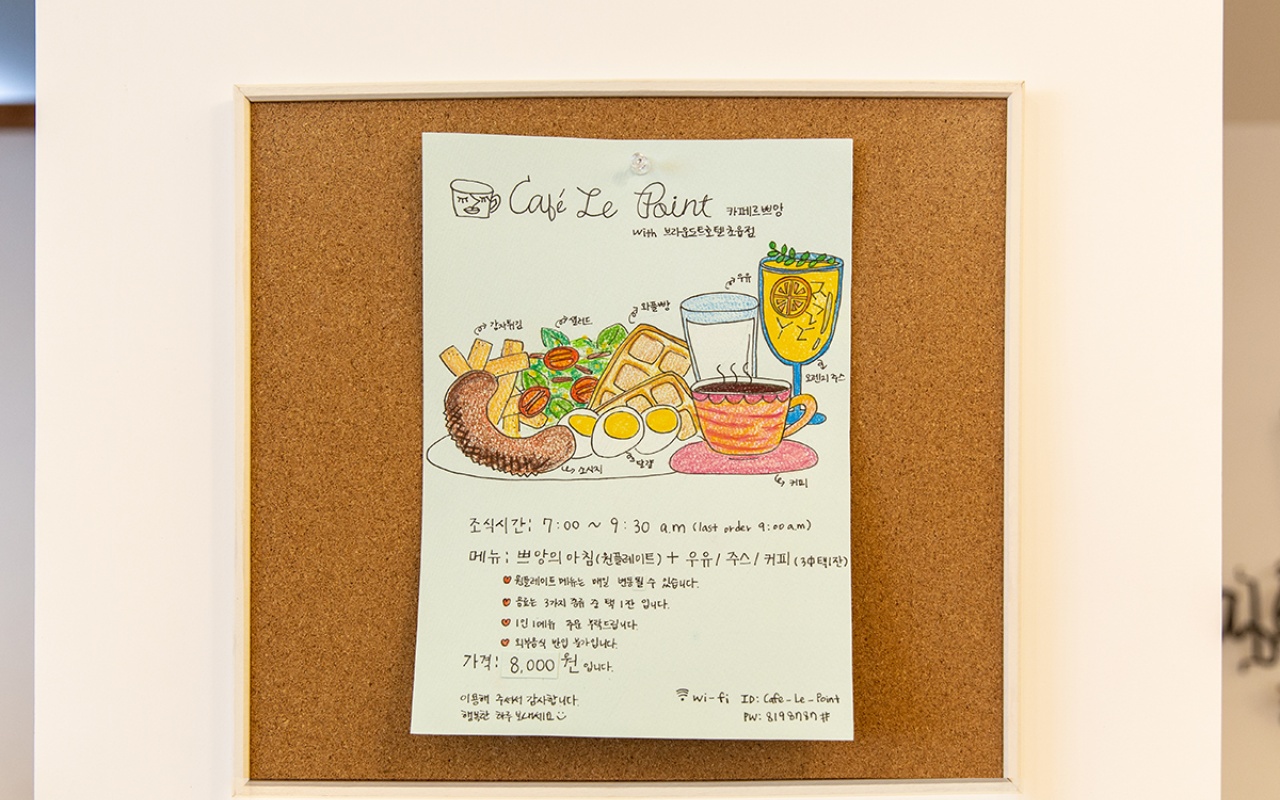 Café Le Point 카페르쁘앙
with 브라운도트호텔초읍점
우유
와플빵
샐러드
감자튀김
오렌지 주스
소시지
달걀
커피
조식시간: 7:00 ~ 9:30 a.m (last order 9:00 a.m)
메뉴: 쁘앙의 아침(원플레이트) + 우유/주스/커피(3中택1잔)
원플레이트 메뉴는 매일 변동될 수 있습니다.
음료는 3가지 종류 중 택 1잔 입니다.
1인 1메뉴 주문 부탁드립니다.
외부음식 반입 불가입니다.
가격: 8,000원 입니다.
이용해 주셔서 감사합니다.
행복한 하루 보내세요
wi-fi ID: Cafe_Le_Point
PW: 8198787#